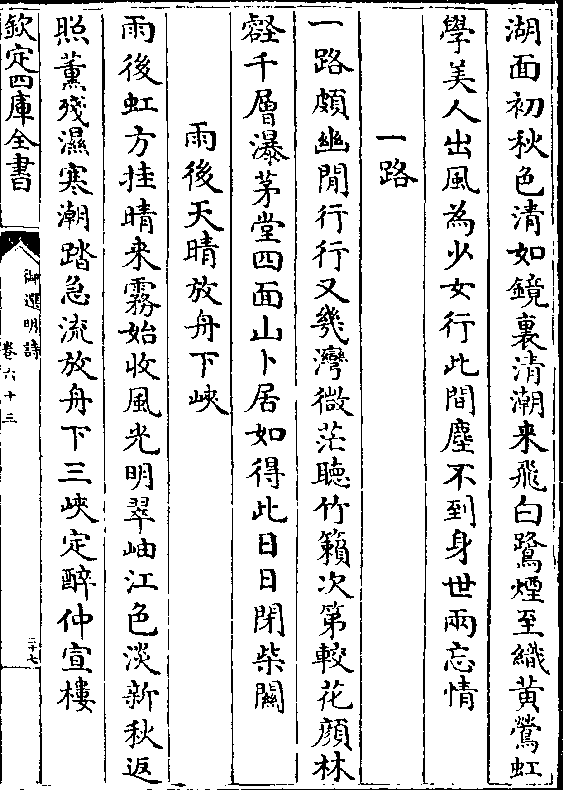 湖面初秋色清如鏡裏清潮来飛白鷺煙至織黄鶯虹
學美人出風為少女行此間塵不到身世兩忘情
一路
一路頗幽閒行行又幾灣微茫聴竹籟次第較花顔林
壑千層瀑茅堂四面山卜居如得此日日閉柴關
雨後天晴放舟下峽
雨後虹方挂晴来霧始收風光明翠岫江色淡新秋返
照薫殘濕寒潮踏急流放舟下三峽定醉仲宣樓
欽定四庫全書
御選明詩
卷六十三
三十七